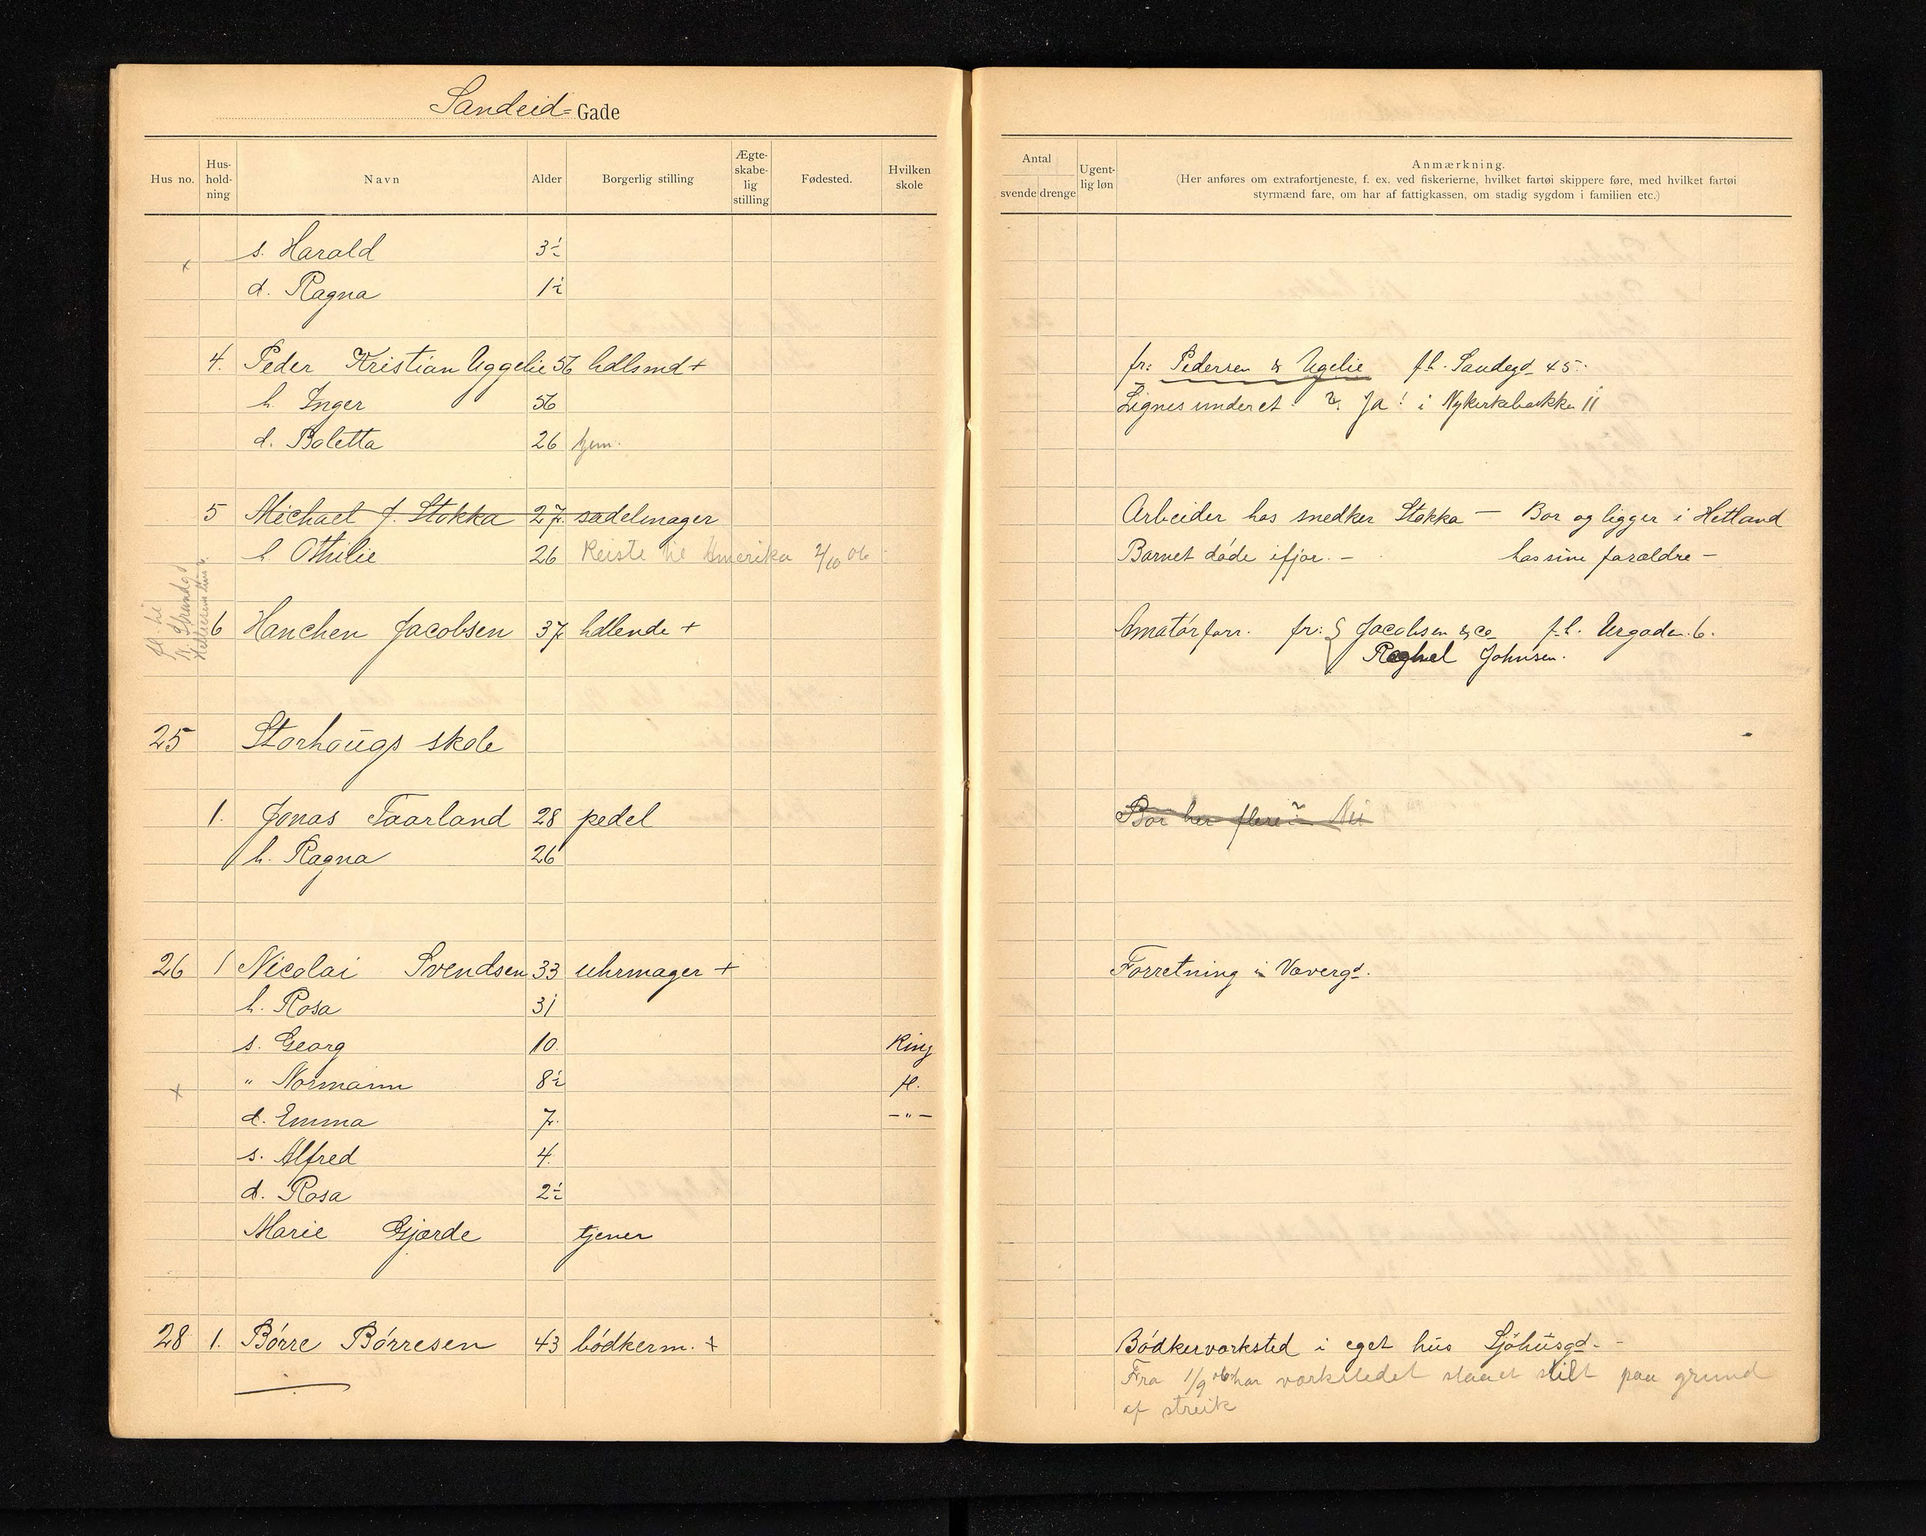 Sandeid- Gade
Hus no. Hus-hold-ning Navn Alder Borgerlig stilling Ægte-skabe-lig stilling Fødested. Hvilken skole
Antal svende drenge Ugent-lig løn Anmærkning.
(Her anføres om extrafortjeneste, f. ex. ved fiskerierne, hvilket fartøi skippere føre, med hvilket fartøi
styrmænd fare, om har af fattigkassen, om stadig sygdom i familien etc.)
s. Harald 3½
+
d. Ragna 1½
4. Peder Kristian Uggelie 56 hdlsmd + fr: Pedersen & Ugelie f.h. Sandegd 45.
h. Inger 56 Lignes underet ? Ja! i Nykirkebakke 11
d. Boletta 26 hjem.
5 Michael J. Stokka 27. sadelmager Arbeider hos snedker Stokka — Bor og ligger i Hetland
h Othilie 26 Reiste til Amerika 2/10 06 Barnet døde ifjor. — hos sine forældre —
6 Hanchen Jacobsen 37 hdlende + Amatørforr. fr: { Jacobsen & Co f.h. Urgaden. 6.
Raghel Johnsen.
25 Storhougs skole
1. Jonas Taarland 28 pedel Bor her flere? Nei
h. Ragna 26
26 1 Nicolai Svendsen 33 uhrmager + Forretning i Vævergd.
h. Rosa 31
s. Georg 10. King
" Normann 8½ H.
+
d. Emma 7. — " —
s. Alfred 4.
d. Rosa 2½
Marie Gjærde tjener
28 1. Børre Børresen 43 bødkerm. + Bødkerværksted i eget hus Sjøhusgd. -
Fra 1/9 06 har værkstedet staaet stilt paa grund
af streik